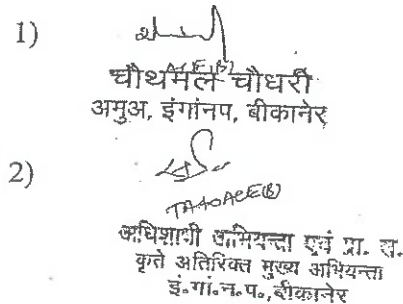 1)
चौथमल चौधरी
अमुअ, इंगांनप, बीकानेर
2)
TA to ACE(B)
अधिशाषी अभियन्ता एवं प्रा. स.
कृते अतिरिक्त मुख्य अभियन्ता
इं.गां.न.प.,बीकानेर